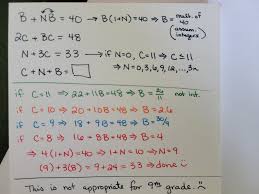 B + NB = 40 → B(1+N) = 40 → B = mult. of 40 (assum. integers)
2C + BC = 48
N + 3C = 33 → if N=0, C=11 → C ≤ 11
→ N = 0, 3, 6, 9, 12, ..., 3n
C + N + B = □
if C = 11 → 22 + 11B = 48 → B = 26/11 not int.
if C = 10 → 20 + 10B = 48 → B = 2.8
if C = 9 → 18 + 9B = 48 → B = 30/9
if C = 8 → 16 + 8B = 48 → B = 4
→ 4(1+N) = 40 → 1+N = 10 → N = 9
(9) + 3(8) = 9 + 24 = 33 → done
This is not appropriate for 9th grade.